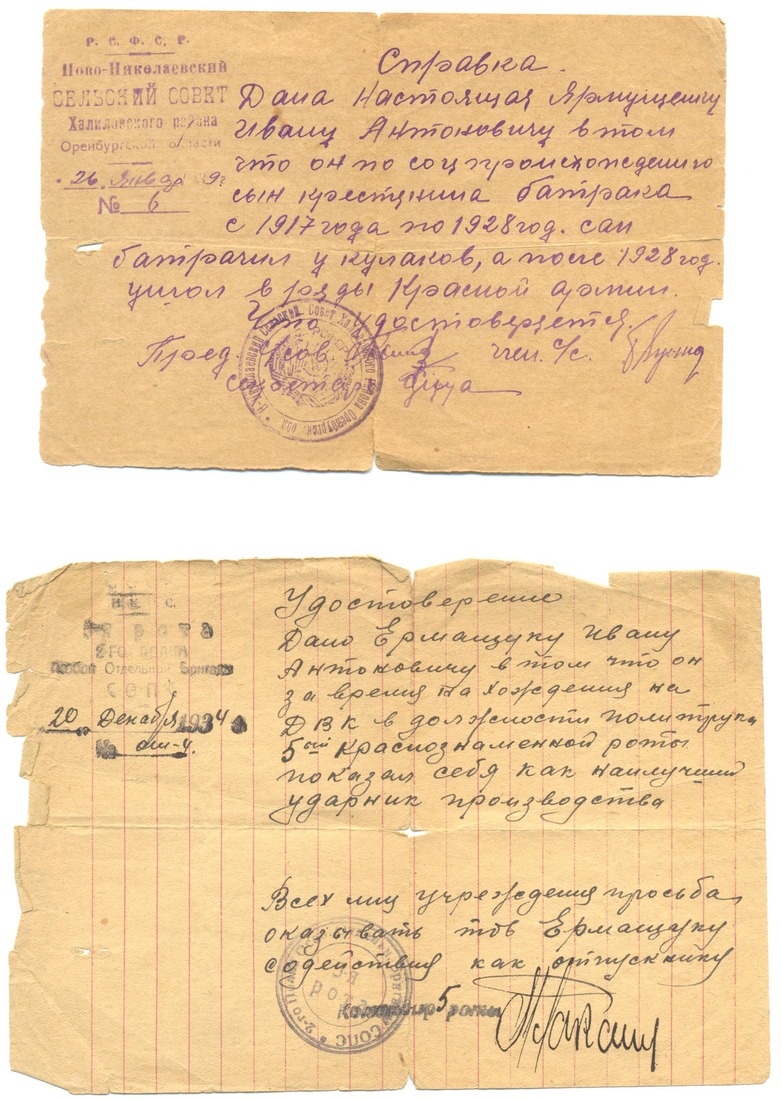 Р. С. Ф. С. Р.
Ново-Николаевский
СЕЛЬСКИЙ СОВЕТ
Халиловского района
Оренбургской области
26 Января
№ 6
Справка.
Дана настоящая Ярмущещку
Ивану Антоновичу в том
что он по соц происхождению
сын крестянина батрака
с 1917 года по 1928 год. сам
батрачил у кулаков, а после 1928 год.
ушол в ряды Красной армии.
Что удостоверяется.
Пред. С/сов. чен. С/с.
Секретарь
5я рота
2ГО ПОЛКА
Особой Отдельной Бригады
СОПС
20 Декабря 1934
№
Удостоверение
Дано Ермащуку Ивану
Антоновичу в том что он
за время на хождения на
ДВК в должности политрука
5ый Краснознаменной роты
показал себя как наилучший
ударник производства
Всех лиц учреждения просьба
оказывать тов Ермащуку
содействия как отпускнику
5я
рота
Командир 5 роты